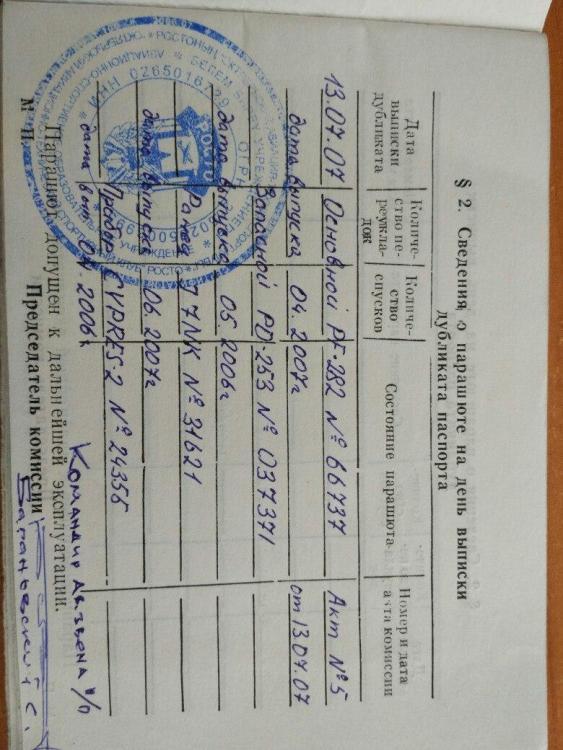 § 2. Сведения о парашюте на день выписки
дубликата паспорта
Дата выписки дубликата
Количество переукладок
Количество спусков
Состояние парашюта
Номер и дата акта комиссии
13.07.07 Основной PF-282 № 66737 Акт № 5
дата выпуска 04.2007г от 13.07.07
Запасной PD-253 № 037371
дата выпуска 05.2006г
Ранец Т7NK № 31621
дата выпуска 06.2007г
Прибор CYPRES-2 № 24355
дата вып 04.2006г
Парашют допущен к дальнейшей эксплуатации.
М. П. Председатель комиссии
Командир звена п/п
Барановский С.
ИНН 0265016729
ОГРН
РОСТО